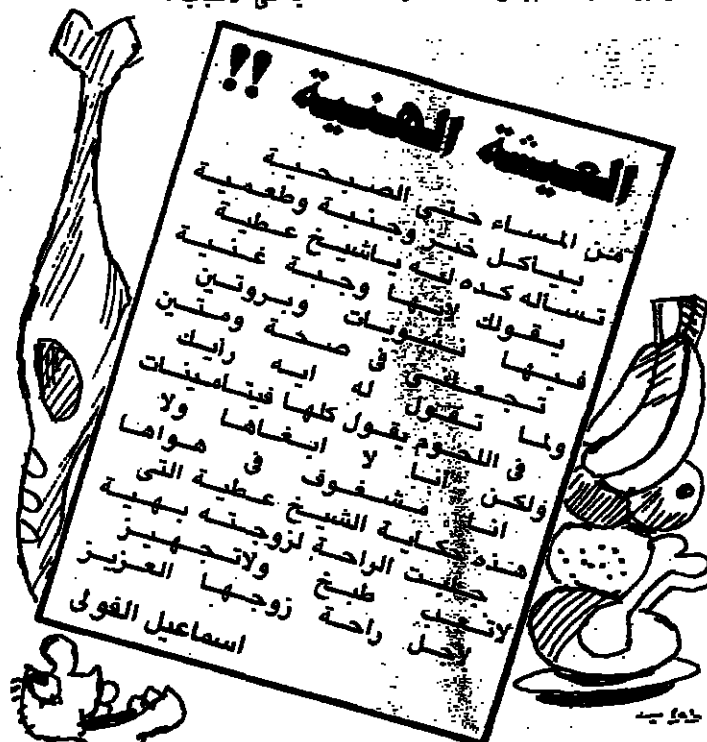 العيشة الهنية !!
من المساء حتى الصبحية
بيأكل خبز وجنبة وطعمية
تسأله كده ليه ياشيخ عطية
يقولك لانها وجبة غنية
فيها نشويات وبروتين
تجعلنى فى صحة ومتين
ولما تقول له ايه رأيك
فى اللحوم يقول كلها فيتامينات
ولكن انا لا ابغاها ولا
انا مشغوف فى هواها
هذه حكاية الشيخ عطية التى
جعلت الراحة لزوجته بهية
طبخ ولاتجهيز
راحة زوجها العزيز
اسماعيل الفولى